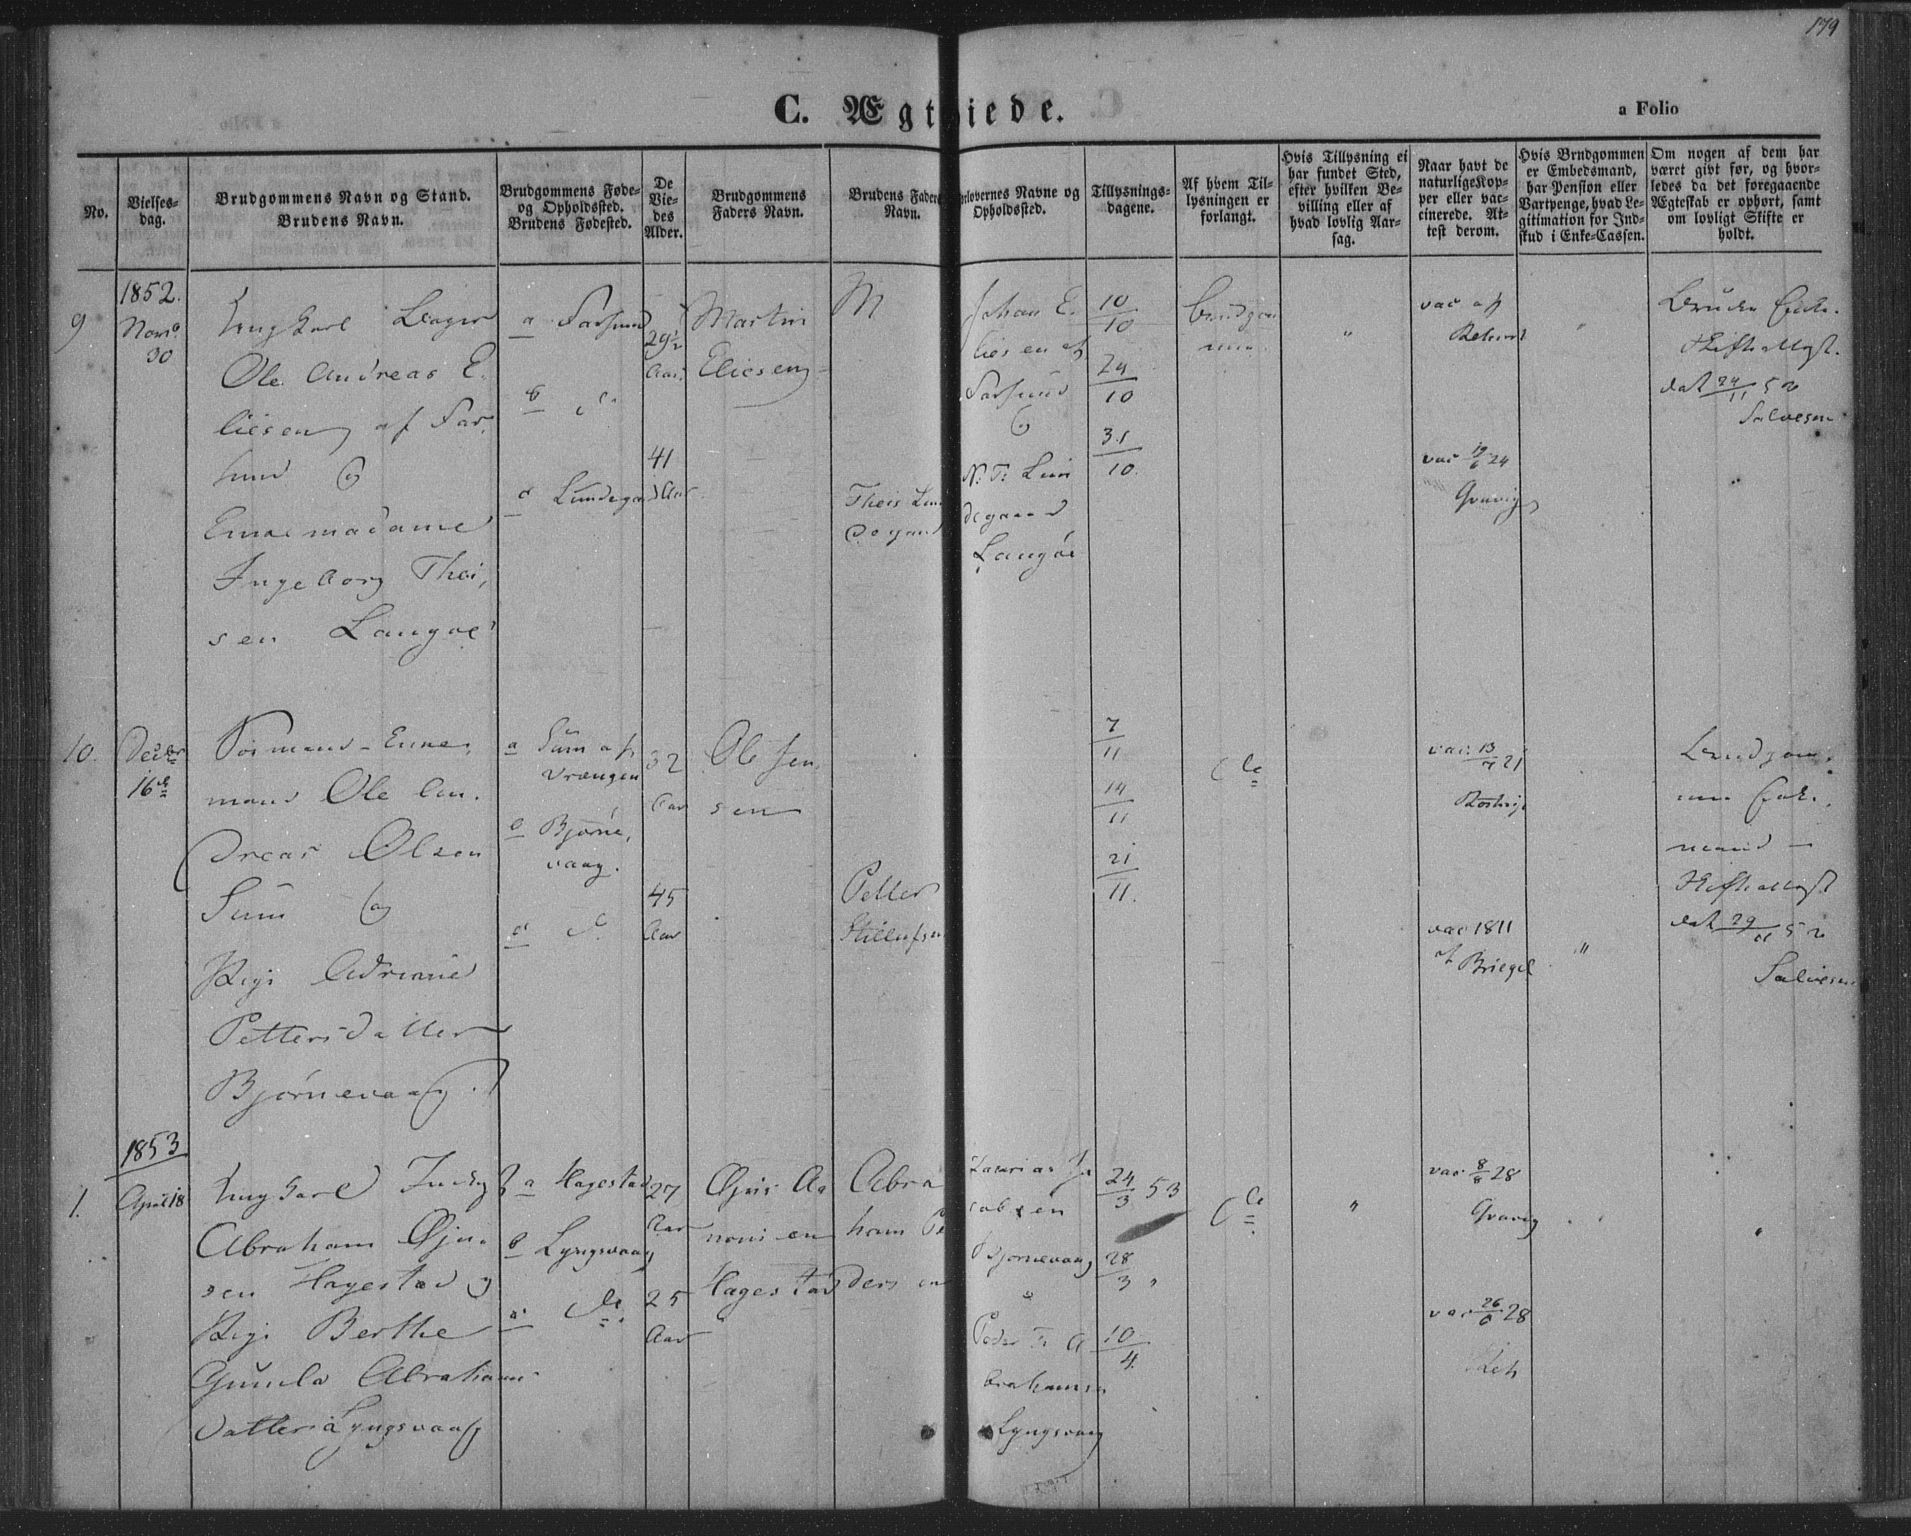 179
C. Ægteviede.
a Folio
No.
Vielses-
dag.
Brudgommens Navn og Stand.
Brudens Navn.
Brudgommens Føde-
og Opholdssted.
Brudens Fødested.
De
Vie-
des
Alder.
Brudgommens
Faders Navn.
Brudens Faders
Navn.
orlovernes Navne og
Opholdssted.
Tillysnings-
dagene.
Af hvem Til-
lysningen er
forlangt.
Hvis Tillysning ei
har fundet Sted,
efter hvilken Be-
villing eller af
hvad lovlig Aar-
sag.
Naar havt de
naturlige Kop-
per eller vac-
cinerede. At-
test derom.
Hvis Brudgommen
er Embedsmand,
har Pension eller
Vartpenge, hvad Le-
gitimation for Ind-
skud i Enke-Cassen.
Om nogen af dem har
været gift før, og hvor-
ledes da det foregaaende
Ægteskab er ophørt, samt
om lovligt Skifte er
holdt.
1852.
9
Novb
30
Ungkarl
Ole Andreas E.
liesen af Far
sund og
Enkemadame
Ingeborg Thei,
sen Langøe
a Farsund
b do
d Lundegaard
29½
Aar
41
Aar
Martin
Eliesen
Theis Lun
degaard
Johan E.
liesen af
Farsund
og
N. T. Lun
degaard
Langøe
10/10
24/10
31/10
Brudgom
men
"
vac af
vac 19/6 24
Gravig
"
Bruden Enke.
Skifteattest
dat 24/11 52
Salvesen
10.
Decbr
16de
Sømand - Enke,
mand Ole An,
dreas Olsen
Sum og
Pige Adriane
Pettersdatter
Bjørnevaag.
a Sum af
Vrængen
b Bjørne,
vaag.
d do
32
Aar
45
Aar
Ole Jen,
sen
Petter
7/11
14/11
21/11
do
vac: 13/7 21
vac 1811
af Briegel
"
Brudgom,
men Enke,
mand -
Skifteattest
dat 29/11 52
Salvesen
1853
1.
April 18
Ungkarl
Abraham Øju,
sen Hagestad og
Pige Berthe
Gunila Abrahams
datter Lyngsvaag
a Hagestad
b Lyngsvaag
d do
27
Aar
25
Aar
Øjus Aa
nonsen
Hagestad
Abra
ham Pe
dersen
Zakarias Ja
cobsen
Bjørnevaag
Peder T. A
brahamsen
Lyngsvaag
24/3 53
28/3 "
10/4
do
"
vac 8/8 28
Gravig
vac 26/6 28
"